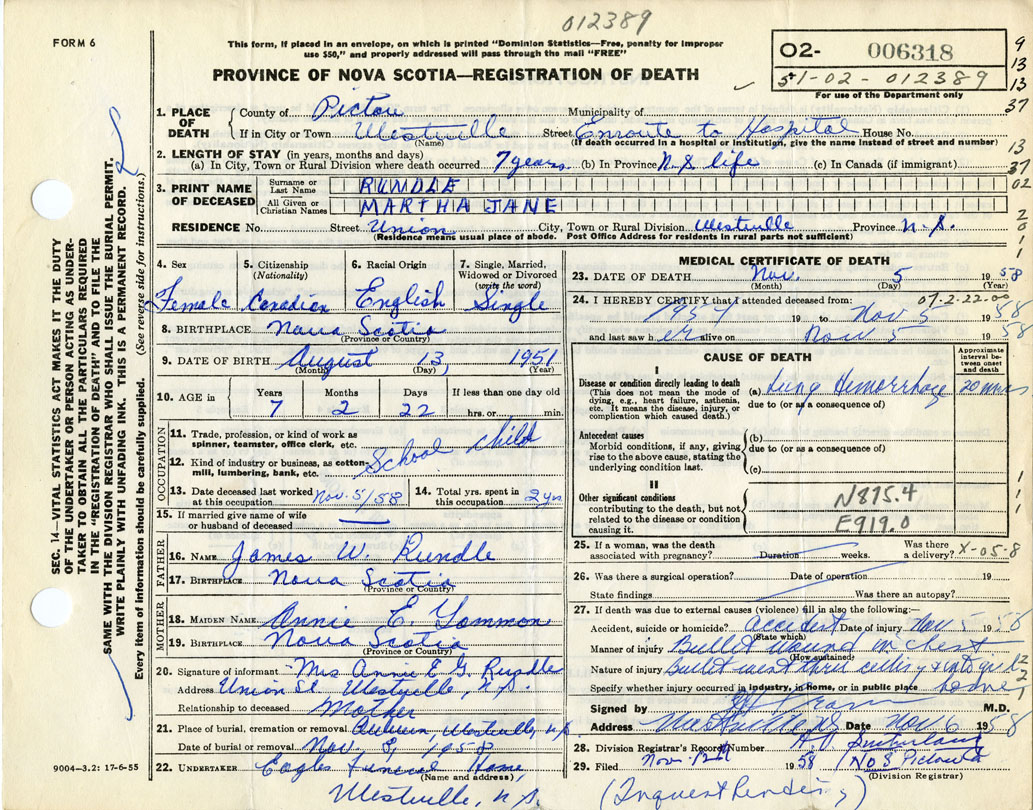 012389
FORM 6
This form, if placed in an envelope, on which is printed "Dominion Statistics—Free, penalty for improper
use $50," and properly addressed will pass through the mail "FREE"
PROVINCE OF NOVA SCOTIA—REGISTRATION OF DEATH
02- 006318
51-02-012389
For use of the Department only
9
13
13
37
13
37
02
2
0
1
1
1. PLACE OF DEATH
County of Pictou Municipality of
If in City or Town Westville Street Enroute to Hospital House No.
(Name) (If death occurred in a hospital or Institution, give the name instead of street and number)
2. LENGTH OF STAY (in years, months and days)
(a) In City, Town or Rural Division where death occurred 7 years (b) In Province N.S. life (c) In Canada (if immigrant)
3. PRINT NAME OF DECEASED
Surname or Last Name RUNDLE
All Given or Christian Names MARTHA JANE
RESIDENCE No. Street Union City, Town or Rural Division Westville Province N.S.
(Residence means usual place of abode. Post Office Address for residents in rural parts not sufficient)
4. Sex 5. Citizenship (Nationality) 6. Racial Origin 7. Single, Married, Widowed or Divorced (write the word)
Female Canadian English Single
8. BIRTHPLACE Nova Scotia
(Province or Country)
9. DATE OF BIRTH August 13, 1951
(Month) (Day) (Year)
10. AGE in Years Months Days If less than one day old
7 2 22 hrs. or min.
OCCUPATION
11. Trade, profession, or kind of work as
spinner, teamster, office clerk, etc.
12. Kind of industry or business, as cotton-
mill, lumbering, bank, etc.
School child
13. Date deceased last worked at this occupation Nov. 5/58
14. Total yrs. spent in this occupation 2 yrs
15. If married give name of wife
or husband of deceased
FATHER
16. NAME James W. Rundle
17. BIRTHPLACE Nova Scotia
(Province or Country)
MOTHER
18. MAIDEN NAME Annie E.
19. BIRTHPLACE Nova Scotia
(Province or Country)
20. Signature of informant Mrs Annie E G Rundle
Address Union St. Westville, N.S.
Relationship to deceased Mother
21. Place of burial, cremation or removal Auburn, Westville, N.S.
Date of burial or removal Nov. 8, 1958
22. UNDERTAKER Eagles Funeral Home,
(Name and address)
Westville, N.S.
9004-3.2: 17-6-55
SEC. 14—VITAL STATISTICS ACT MAKES IT THE DUTY
OF THE UNDERTAKER OR PERSON ACTING AS UNDER-
TAKER TO OBTAIN ALL THE PARTICULARS REQUIRED
IN THE "REGISTRATION OF DEATH" AND TO FILE THE
SAME WITH THE DIVISION REGISTRAR WHO SHALL ISSUE THE BURIAL PERMIT.
WRITE PLAINLY WITH UNFADING INK. THIS IS A PERMANENT RECORD.
Every item of information should be carefully supplied. (See reverse side for instructions.)
MEDICAL CERTIFICATE OF DEATH
23. DATE OF DEATH Nov. 5 1958
(Month) (Day) (Year)
24. I HEREBY CERTIFY that I attended deceased from: 07-2-22-00
1957 19 to Nov 5 1958
and last saw her alive on Nov 5 1958
CAUSE OF DEATH
Approximate interval between onset and death
I
Disease or condition directly leading to death
(This does not mean the mode of
dying, e.g., heart failure, asthenia,
etc. It means the disease, injury, or
complication which caused death.)
(a) Lung Hemorrhage 20 mins
due to (or as a consequence of)
Antecedent causes
Morbid conditions, if any, giving
rise to the above cause, stating the
underlying condition last.
(b)
due to (or as a consequence of)
(c)
II
Other significant conditions
contributing to the death, but not
related to the disease or condition
causing it.
N875.4
E919.0
1
1
1
25. If a woman, was the death associated with pregnancy? Duration weeks. Was there a delivery? X-05-8
26. Was there a surgical operation? Date of operation 19
State findings Was there an autopsy?
27. If death was due to external causes (violence) fill in also the following:—
Accident, suicide or homicide? accident Date of injury Nov 5 1958
(State which)
Manner of injury Bullet wound in chest
(How sustained)
Nature of injury Bullet went thru
Specify whether injury occurred in industry, in Home, or in public place home
Signed by M.D.
Address Date Nov 6 1958
28. Division Registrar's Record Number
29. Filed Nov. 12th 1958 No 8 Pictou Co
(Division Registrar)
(Inquest Pending)